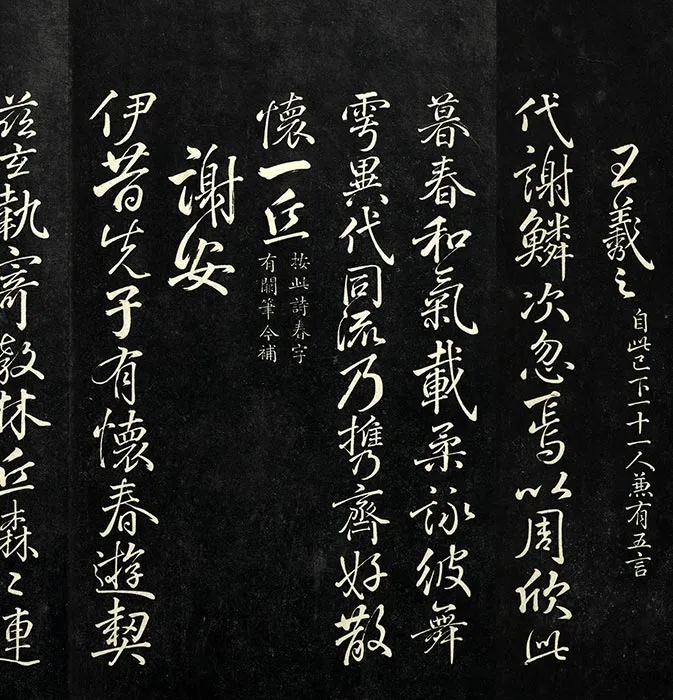 王羲之 自此已下一十一人兼有五言
代謝鱗次忽焉以周欣此
暮春和氣載柔詠彼舞
雩異代同流乃携齊好散
懷一丘
按此詩春字
有闕筆今補
謝安
伊昔先子有懷春遊契
茲言執寄傲林丘森〻連